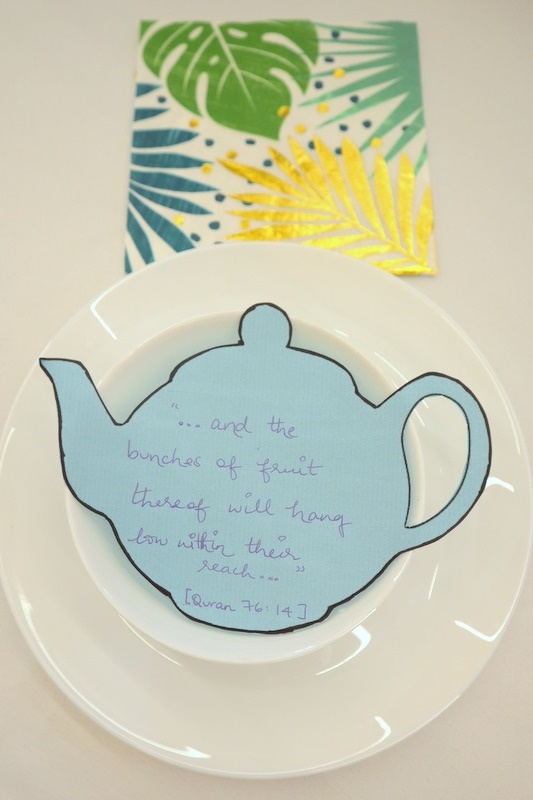 "... and the
bunches of fruit
thereof will hang
low within their
reach..."
[Quran 76:14]